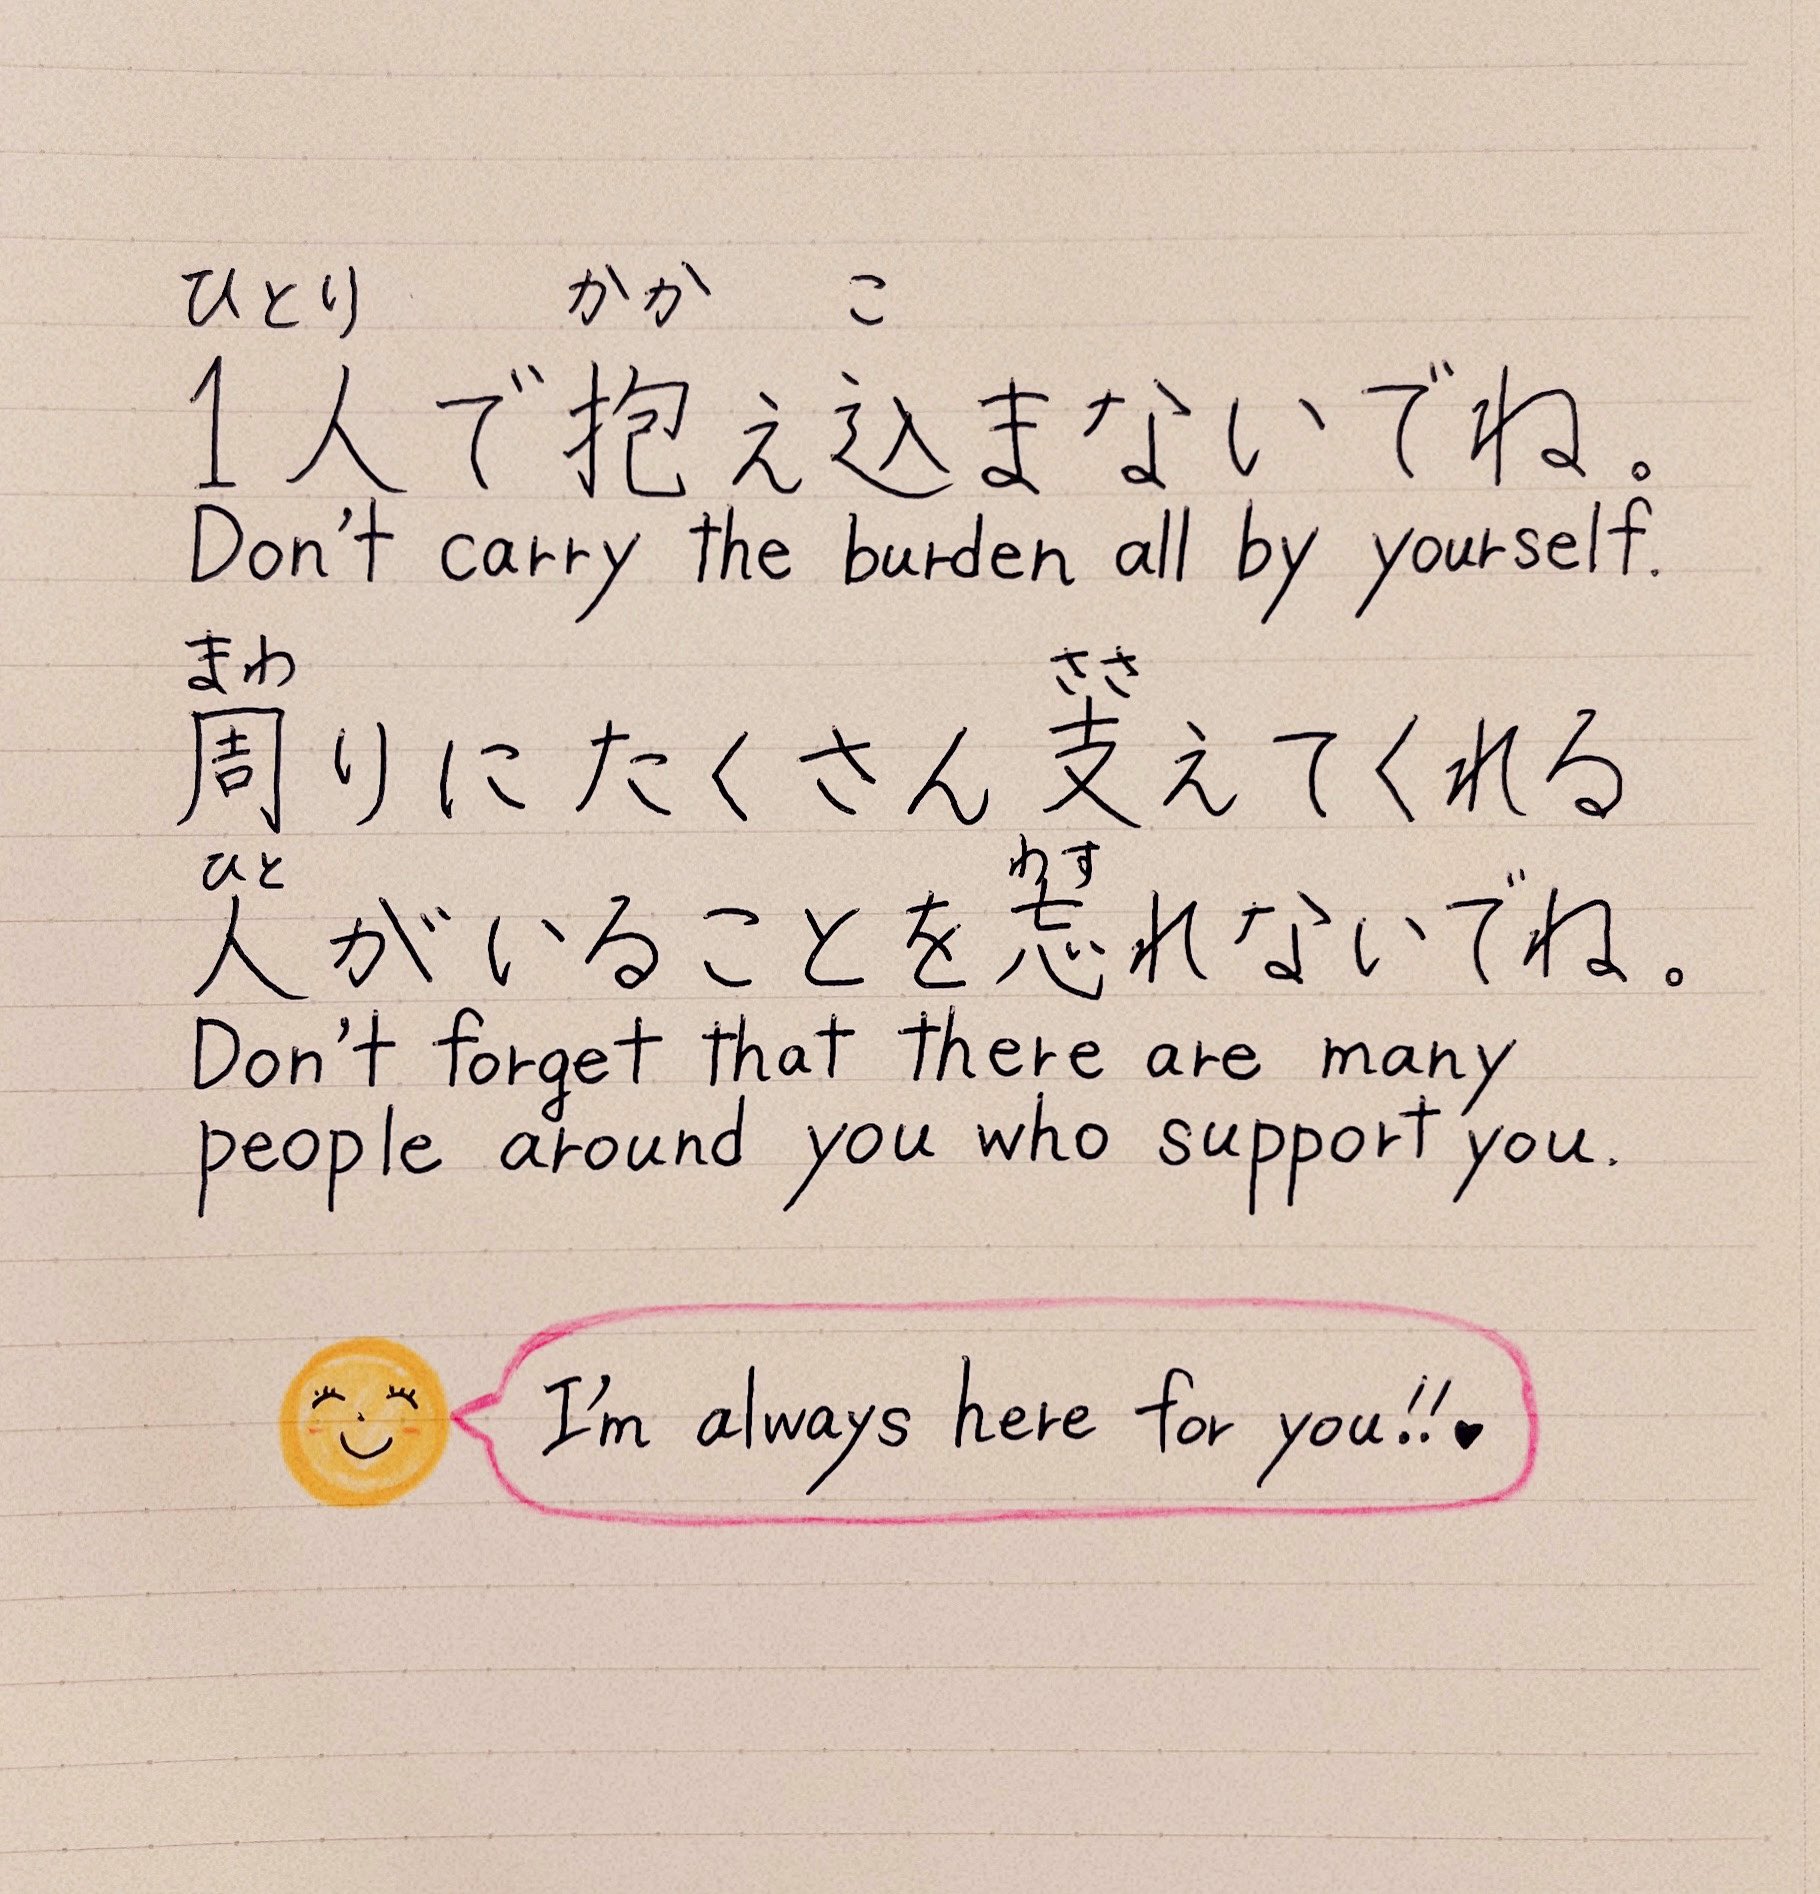 ひとり かか こ
1人で抱え込まないでね。
Don't carry the burden all by yourself.
まわ ささ
周りにたくさん支えてくれる
ひと わす
人がいることを忘れないでね。
Don't forget that there are many
people around you who support you.
I'm always here for you!!♥